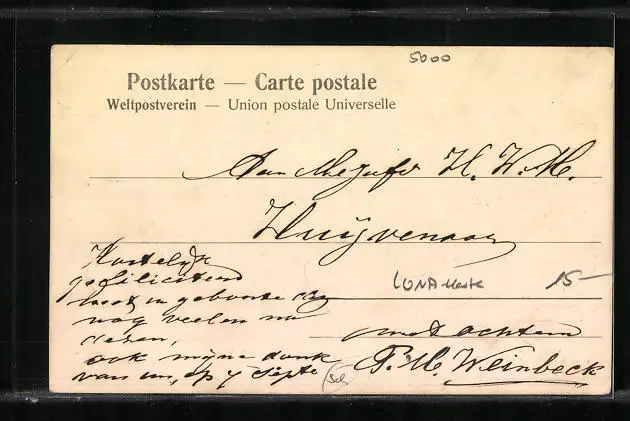 5000
Postkarte — Carte postale
Weltpostverein — Union postale Universelle
Aan Mejufr H. W. M.
Huijvenaar
Hartelijk
gefiliciteerd
met uw geboorte dag
nog veelen na
dezen,
ook mijne dank
van uw, op 4 Septr
LUNA-Karte
15-
met achten
P. M. Weinbeck
Sch